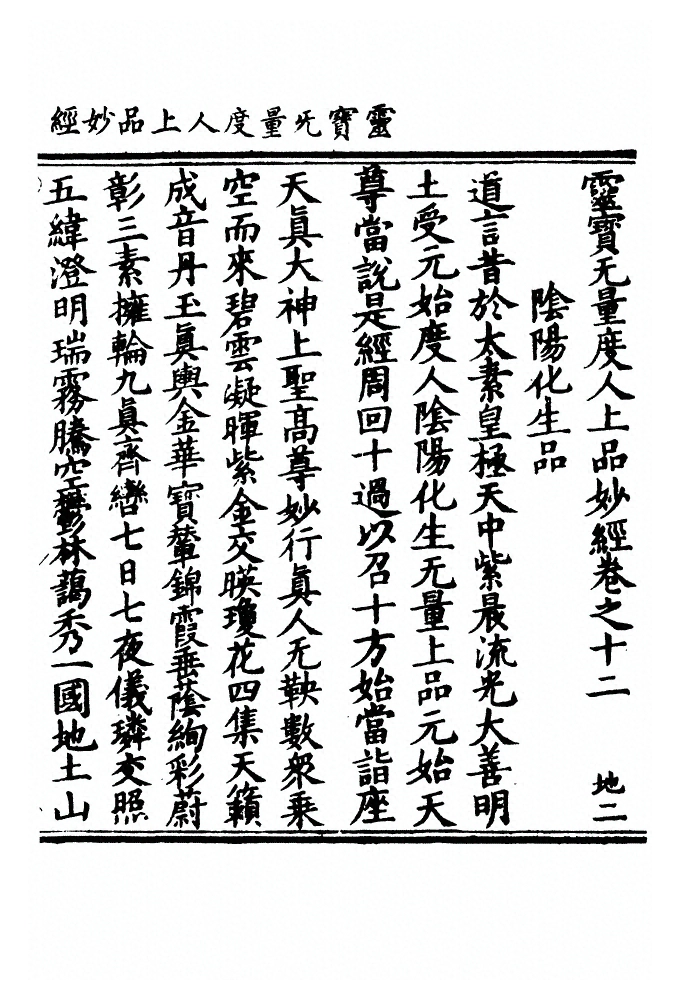 靈寶旡量度人上品妙經
靈寶无量度人上品妙經卷之十二　地二
陰陽化生品
道言昔於太素皇極天中紫晨流光大善明
土受元始度人陰陽化生无量上品元始天
尊當說是經周回十過以召十方始當詣座
天眞大神上聖高尊妙行眞人无鞅數衆乘
空而來碧雲凝暉紫金交暎瓊花四集天籟
成音丹玉眞輿金華寶輦錦霞垂蔭絢彩蔚
彰三素擁輪九眞齊轡七日七夜儀璘交照
五緯澄明瑞霧騰空鬱林藹秀一國地土山